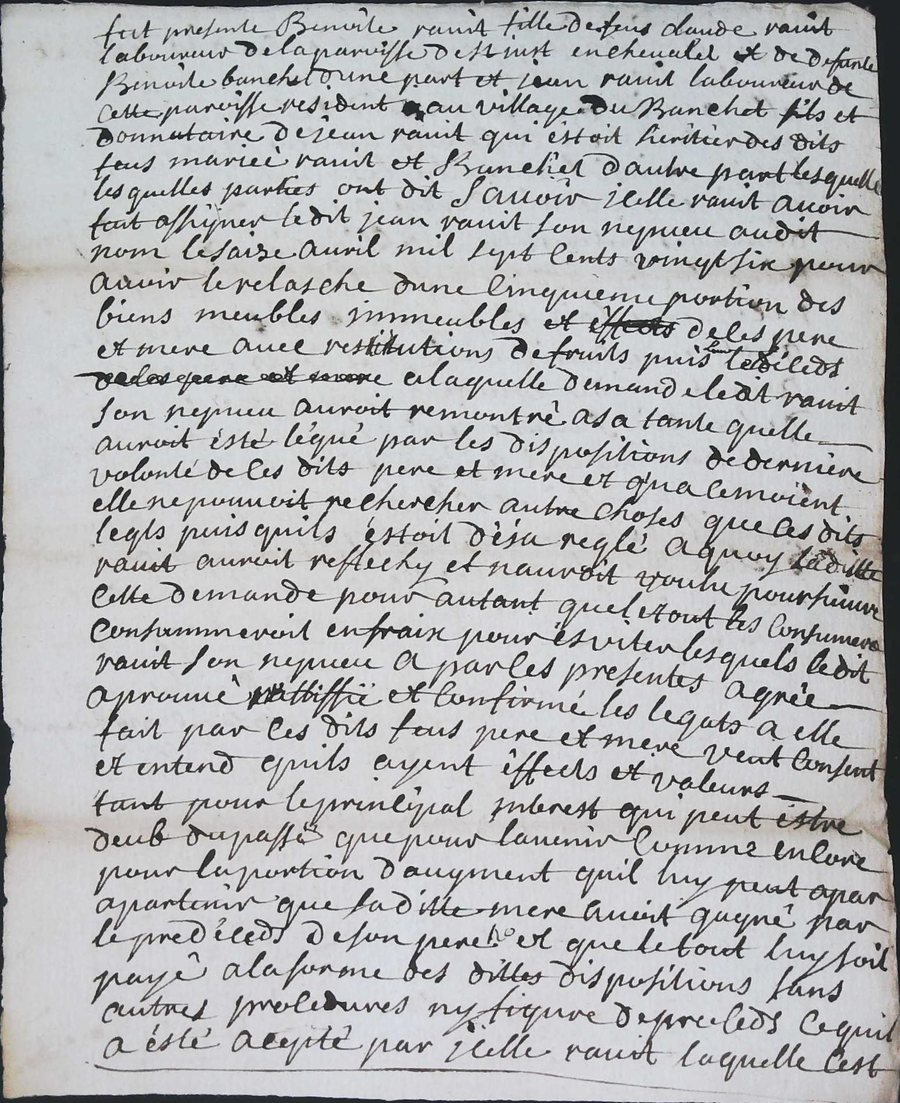 fut presente Benoite ravit fille de feus claude ravit
laboureur de la paroisse de st just en chevalet et de defunte
Benoite banchet dune part et jean ravit laboureur de
cette paroisse resident au village du Banchet fils et
donnataire de jean ravit qui estoit heritier des dits
feus mariée ravit et Banchet dautre part lesquelle
lesquelles parties ont dit Sauoir jcelle ravit avoir
fait assigner ledit jean ravit son nepueu audit
nom le saize avril mil sept cents vingt six pour
auoir le relasche dune cinquieme portion des
biens meubles jmmeubles et effects de ses pere
et mere avec restitutions de fruits puis leur déceds
de ses pere et mere a laquelle demande ledit ravit
son nepueu auroit remontré a sa tante quelle
auroit ésté légué par les dispositions de derniere
volonté de ces dits pere et mere et qua ce moient
elle ne pouuoit rechercher autre choses que ces dits
legts puisquils éstoit déja reglé a quoy laditte
ravit auroit reflechy et nauroit voulu poursuiure
cette demande pour autant que le tout ses consumera
consummeroit en fraix pour esviter lesquels ledit
ravit son nepueu a par ces presentes agrée
aprouué rattiffié et confirmé les legats a elle
fait par ces dits feus pere et mere veut consent
et entend quils ayent éffects et valeurs
tant pour le principal jnterest qui peut estre
deub du passé que pour lauenir comme encore
pour la portion daugment quil luy peut apar
apartenir que sa ditte mere auoit gagné par
le predéceds de son pere et que le tout luy soit
payé a la forme des dittes dispositions sans
autres procedures ny figure de proceds ce quil
a ésté acepté par jcelle ravit laquelle cest